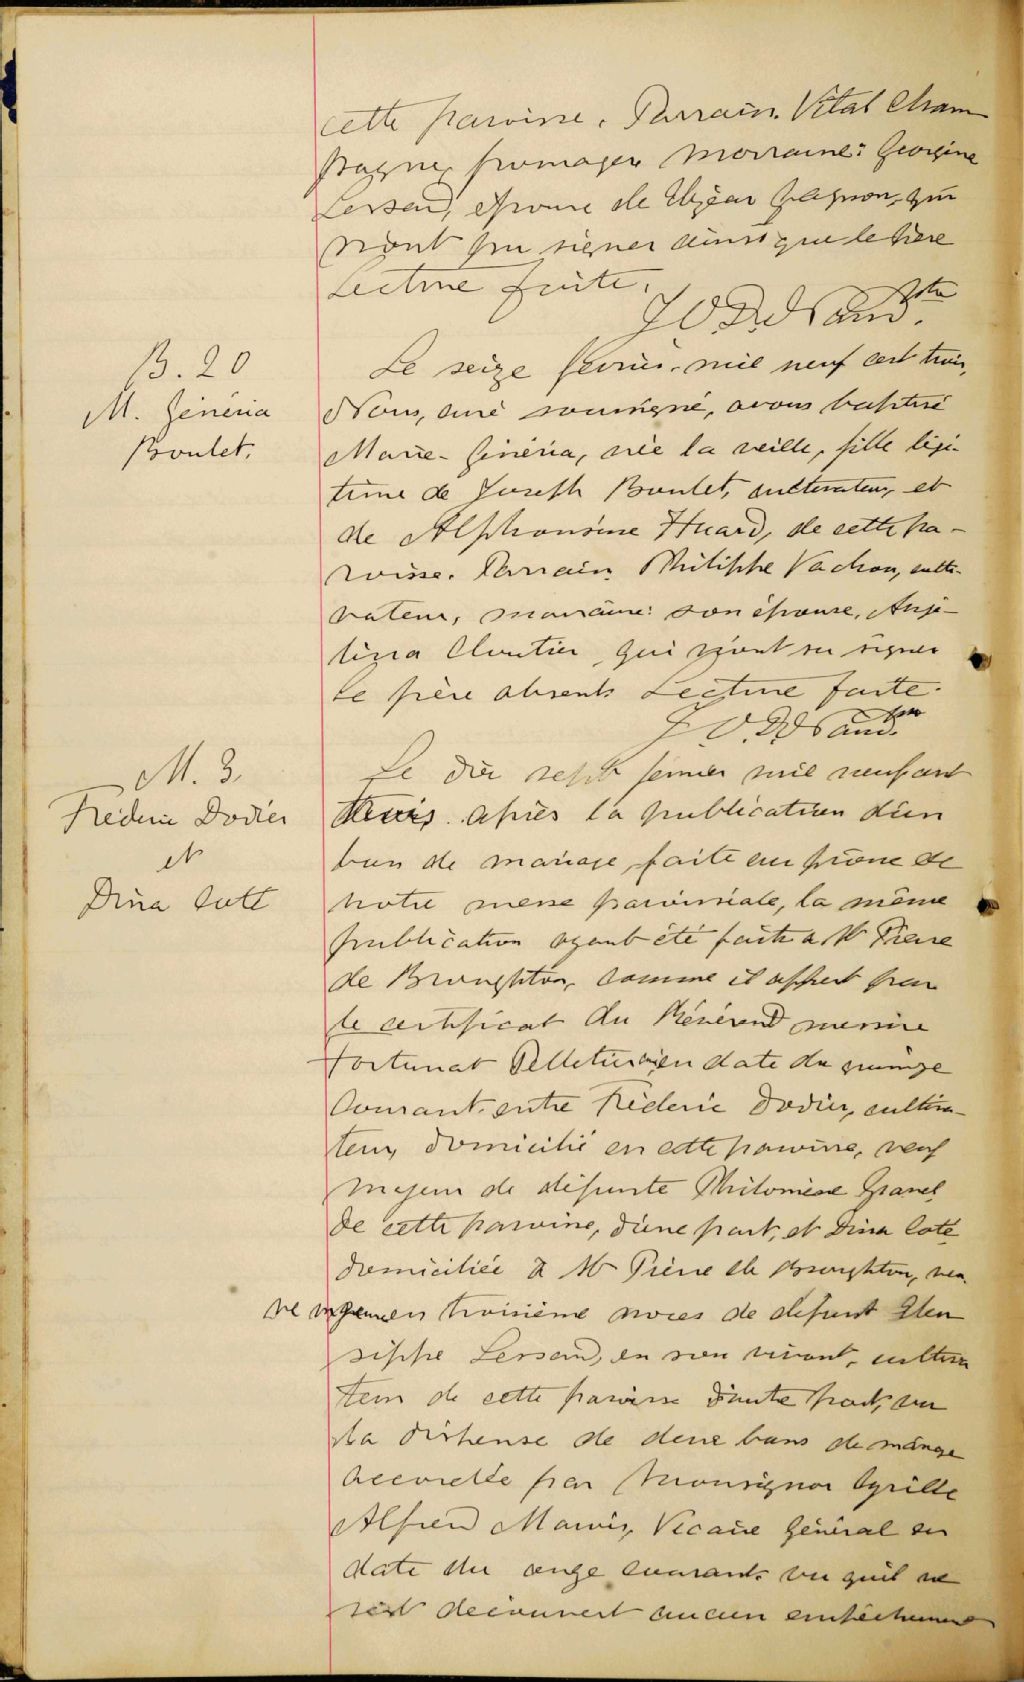 cette paroisse. Parrain Vital Cham
pagne, fromager Marraine: Georgine
Lessard, épouse de Elzéar Gagnon, qui
n'ont pu signer ainsi que le père
Lecture faite.
ptre
B. 20
M. Généria
Boulet.
Le seize février mil neuf cent trois,
Nous, curé soussigné, avons baptisé
Marie-Généria, née la veille, fille légi-
time de Joseph Boulet, cultivateur, et
de Alphonsine Huard, de cette pa-
roisse. Parrain Philippe Vachon, culti-
vateur, marraine: son épouse, Angé-
lina Cloutier, qui n'ont su signer
le père absent. Lecture faite.
M. 3.
Fréderic Dodier
et
Dina Coté
Le dix sept février mil neuf cent
trois après la publication d'un
ban de mariage, faite au prône de
notre messe paroissiale, la même
publication ayant été faite à St Pierre
de Broughton, comme il appert par
le certificat du Révérend messire
Fortunat Pelletier en date du quinze
courant, entre Fréderic Dodier, cultiva-
teur, domicilié en cette paroisse, veuf
majeur de défunte Philomène Granel
de cette paroisse, d'une part, et Dina Coté
domiciliée à St Pierre de Broughton, veu-
ve majeure en troisième noces de défunt Eleu
sippe Lessard, en son vivant, cultiva
teur de cette paroisse d'autre part, vu
la dispense de deux bans de mariage
accordée par Monsignor Cyrille
Alfred Marois, Vicaire Général en
date du onze courant vu qu'il ne
s'est découvert aucun empêchement